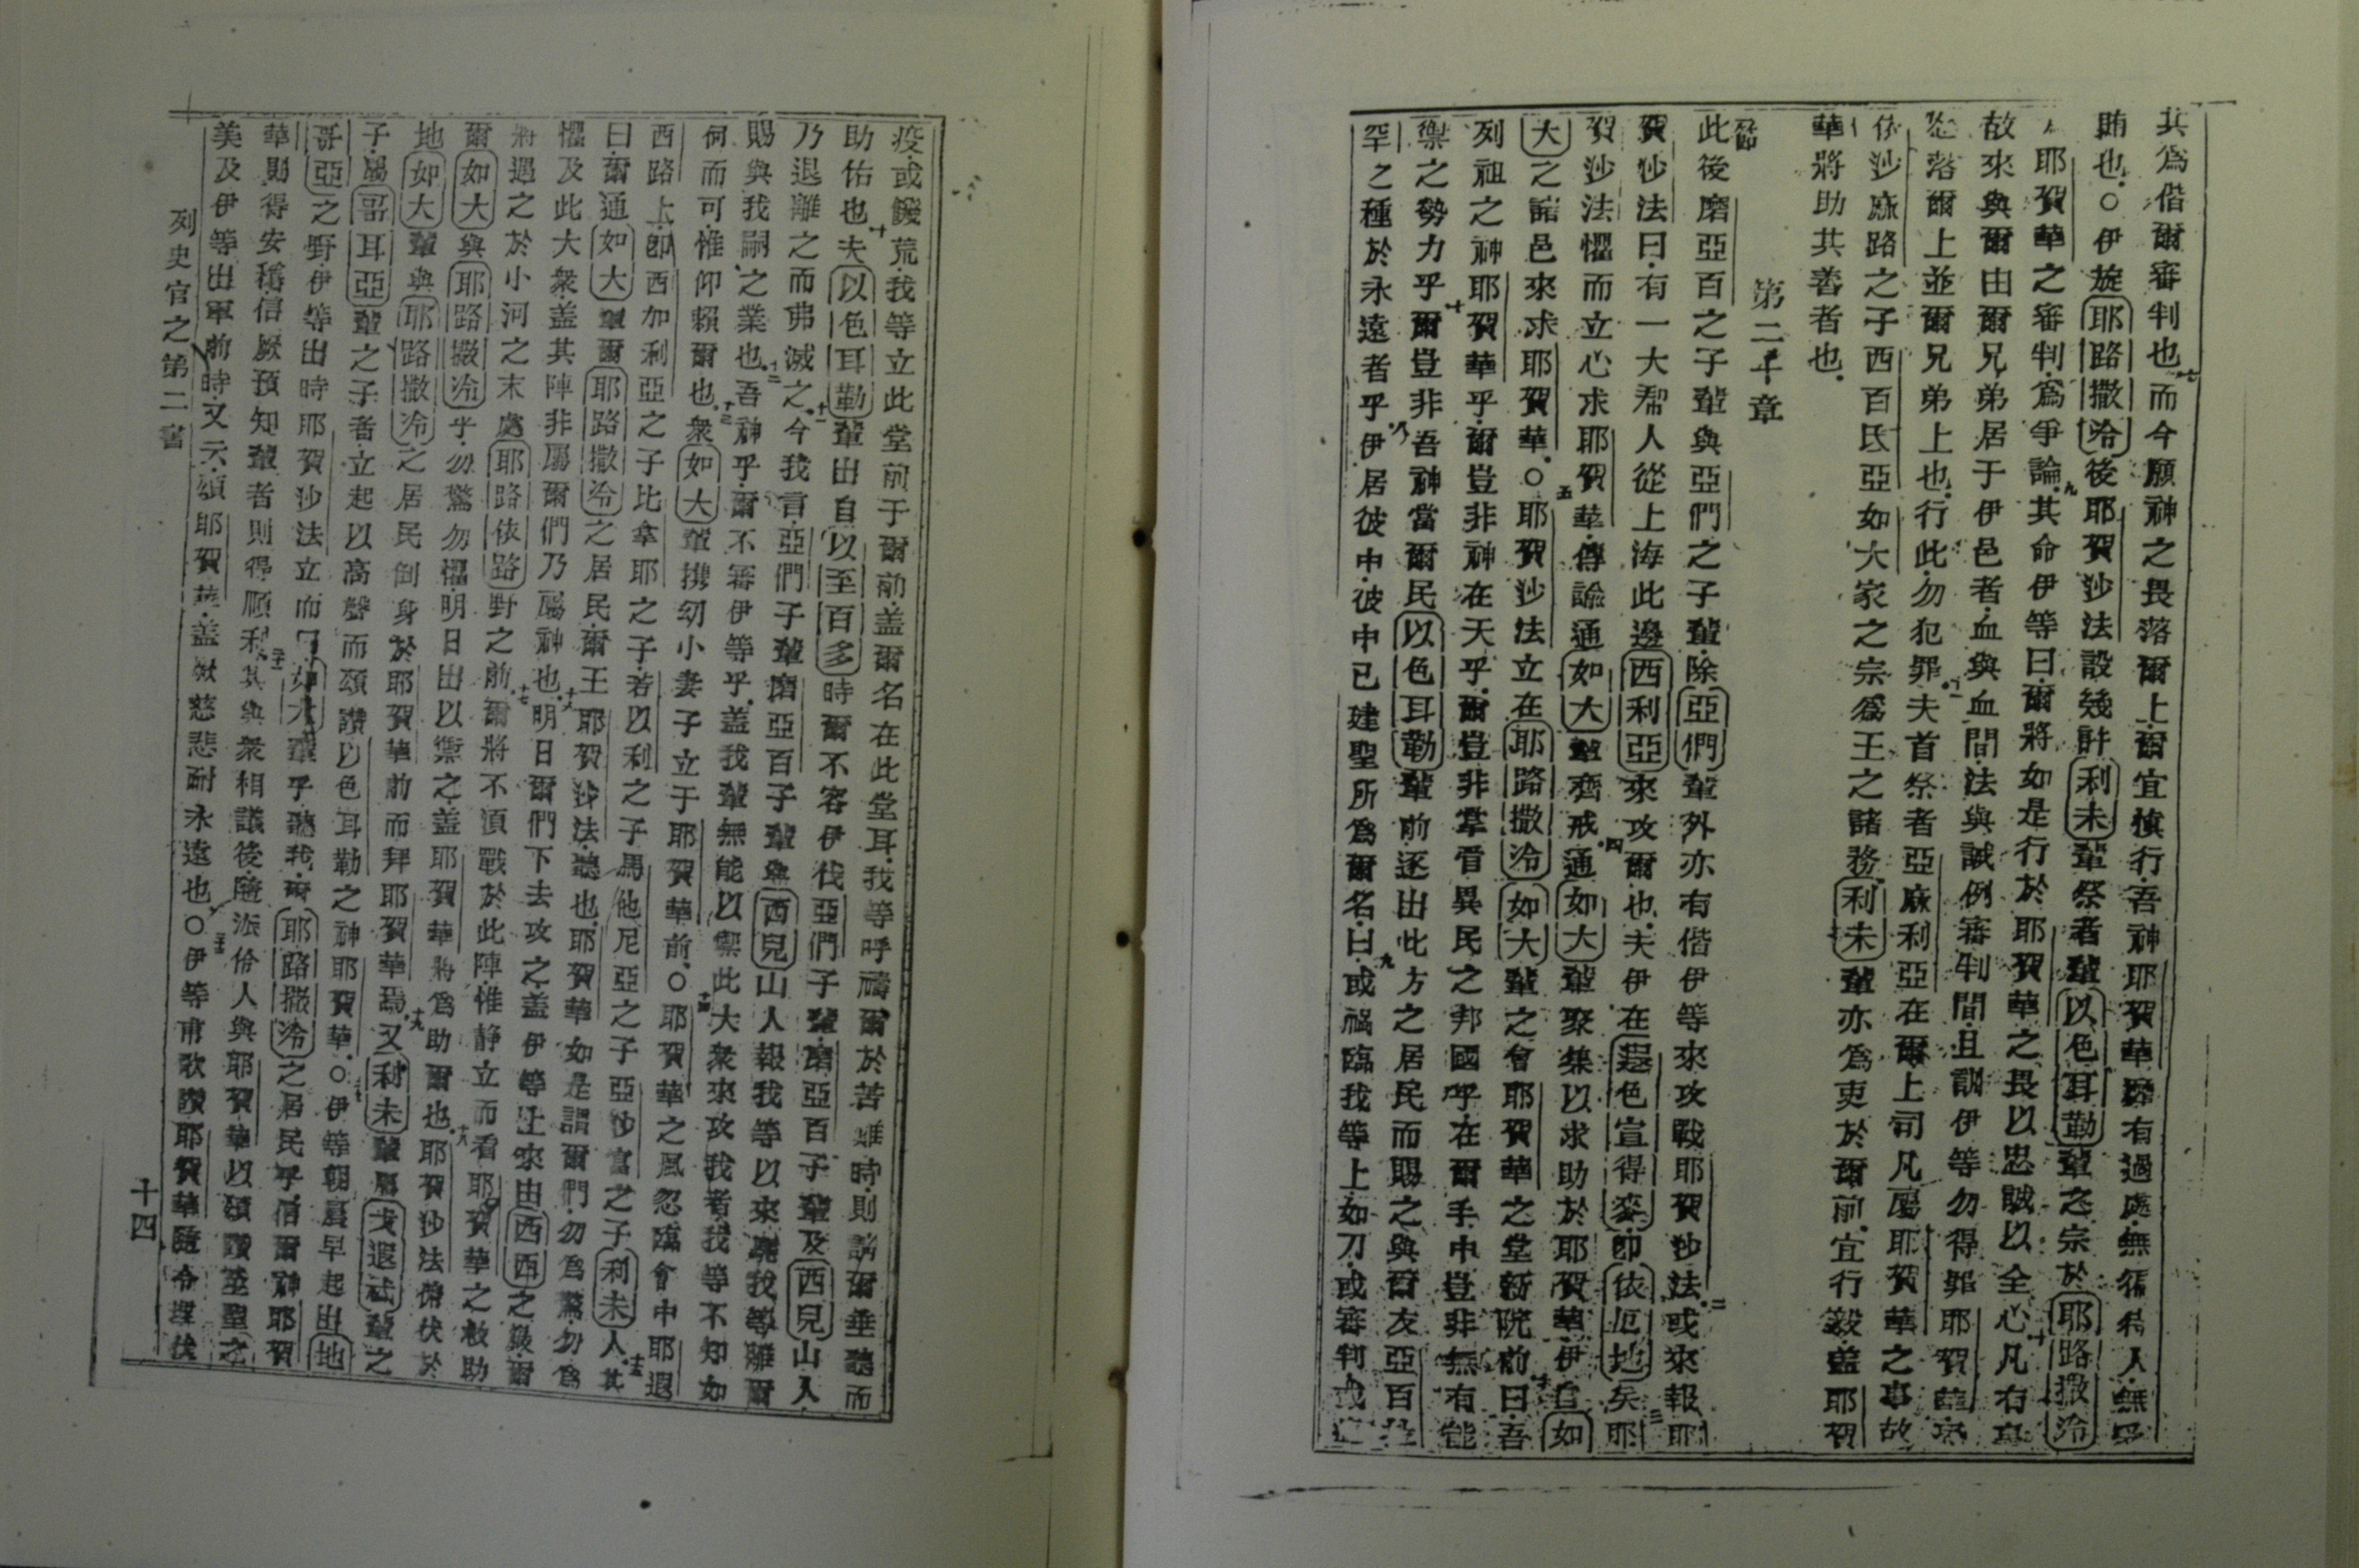 其爲偕爾審判也七而今願神之畏落爾上爾宜慎行吾神耶賀華𣎴有過處無徇人無受
賄也○伊旋耶路撒冷後耶賀沙法設幾許利未輩祭者輩以色耳勒輩之宗於耶路撒冷
耶賀華之審判爲爭論九其命伊等曰爾將如是行於耶賀華之畏以忠誠以全心十凡有
故來與爾由爾兄弟居于伊邑者血與血間法與誡例審判間且訓伊等勿得罪耶賀華
落爾上並爾兄弟上也行此勿犯罪十一夫首祭者亞麻利亞在爾上司凡屬耶賀華之事故
依沙麻路之子西百氏亞如大家之宗爲王之諸務利未輩亦爲吏於爾前宜行毅盖耶賀
華將助其善者也
第二十章
節
此後磨亞百之子輩與亞們之子輩除亞們輩外亦有偕伊等來攻戰耶賀沙法二或來報耶
賀沙法曰有一大帮人從上海此邊西利亞來攻爾也夫伊在遐色宣得麥卽依厄地矣三耶
賀沙法懼而立心求耶賀華傳諭通如大輩齊戒四通如大輩聚集以求助於耶賀華伊自如
大之諸邑來求耶賀華○五耶賀沙法立在耶路撒冷如大輩之會耶賀華之堂新院前六曰吾
列祖之神耶賀華乎爾豈非神在天乎爾豈非掌管異民之邦國乎在爾手中豈非無有能
禦之勢力乎七爾豈非吾神當爾民以色耳勒輩前逐出此方之居民而賜之與爾友亞百
罕之種於永遠者乎八伊居彼中彼中已建聖所爲爾名九曰或禍臨我等上如刀或審判或
疫或饑荒我等立此堂前于爾前盖爾名在此堂耳我等呼禱爾於苦難時則請爾垂聽而
助佑也十夫以色耳勒輩出自以至百多時爾不容伊伐亞們子輩磨亞百子輩及西兒山人
乃退離之而弗滅之十一今我言亞們子輩磨亞百子輩與西兒山人報我等以來逐我等離爾
賜與我嗣之業也十二吾神乎爾不審伊等乎盖我輩無能以禦此大衆來攻我者我等不知如
何而可惟仰賴爾也十三衆如大輩携幼小妻子立于耶賀華前○十四耶賀華之風忽臨會中耶遐
西路上卽西加利亞之子比拿耶之子若以利之子馬他尼亞之子亞沙富之子利未人十五其
曰爾通如大輩爾耶路撒冷之居民爾王耶賀沙法聽也耶賀華如是謂爾們勿爲驚勿爲
懼及此大衆盖其陣非屬爾們乃屬神也十六明日爾們下去攻之盖伊等上來由西西之巖爾
將遇之於小河之末處耶路依路野之前十七爾將不須戰於此陣惟静立而看耶賀華之救助
爾如大與耶路撒冷乎勿驚勿懼明日出以禦之盖耶賀華將爲助爾也十八耶賀沙法俯伏於
地如大輩與耶路撒冷之居民倒身於耶賀華前而拜耶賀華焉十九又利未輩屬戈遐忒輩之
子屬哥耳亞輩之子者立起以高聲而頌讚以色耳勒之神耶賀華○二十伊等朝晨早起出地
哥亞之野伊等出時耶賀沙法立而曰如大輩乎聽我爾耶路撒冷之居民乎信爾神耶賀
華則得安穩信厥預知輩者則得順利二十一其與衆相議後隨派伶人與耶賀華以頌讚至聖之
美及伊等出軍前時又云頌耶賀華盖厥慈悲耐永遠也○二十二伊等甫歌讚耶賀華隨令埋伏
列史官之第二書
十四